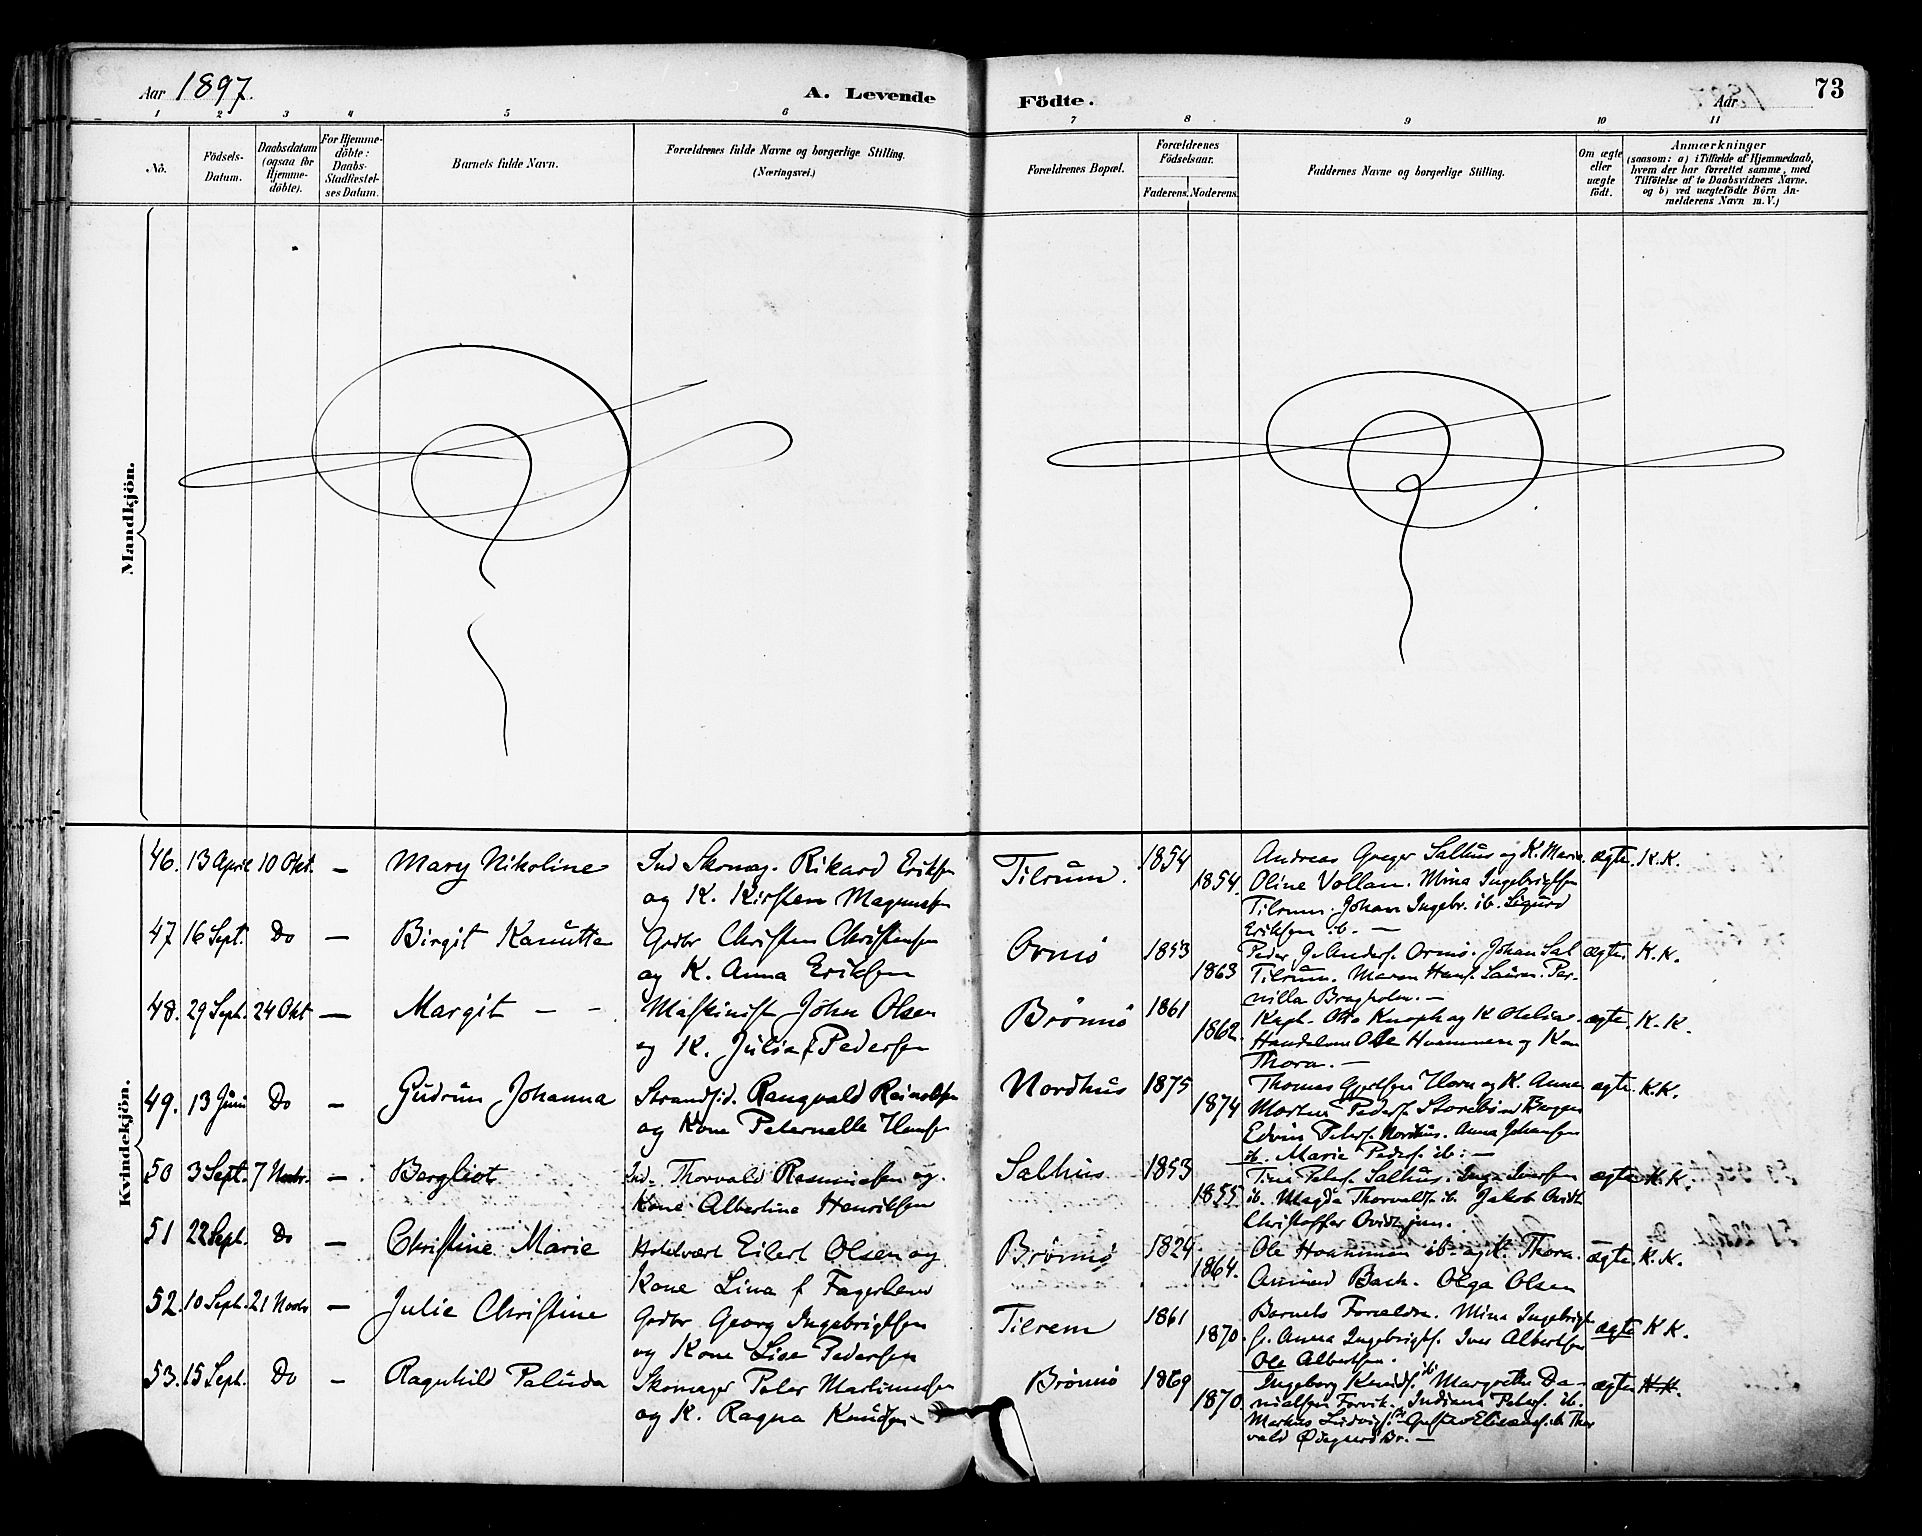 Aar 1897.
A. Levende
Födte.
Aar
73
1 2 3 4 5 6 7 8 9 10 11
Nö.
Födsels-
Datum.
Daabsdatum
(ogsaa for
Hjemme-
döbte).
For Hjemme-
döbte:
Daabs-
Stadfæstel-
ses Datum.
Barnets fulde Navn.
Forældrenes fulde Navne og borgerlige Stilling.
(Næringsvei.)
Forældrenes Bopæl.
Forældrenes
Födselsaar.
Faderens. Moderens.
Faddernes Navne og borgerlige Stilling.
Om ægte
eller
uægte
födt.
Anmærkninger
(saasom: a) i Tilfælde af Hjemmedaab,
hvem der har forrettet samme, med
Tilföielse af to Daabsvidners Navne.
og b) ved uægtefödte Börn An-
melderens Navn m. V.)
Mandkjön.
Kvindekjön.
46. 13 April 10 Okt. — Mary Nikoline Ind Skomag. Rikard Eriksen Tilrum. 1854 Andreas Greger Salhus og K. Marie ægte. K.K.
og K. Kirsten Magnussen 1854. Oline Vollan. Mina Ingebrigtsen
Tilrum. Johan Ingebr. ib. Sigurd
Eriksen ib. —
47 16 Sept. Do — Birgit Kanutta Grdbr Christen Christensen Ornsö 1853 Peder Andersf. Ornsö. Johan Sal ægte. K.K.
og K. Anna Eriksen 1863 Tilrum. Maren Hansf. Per-
nilla Bragholm. —
48. 29 Sept. 24 Okt — Margit — — Maskinist John Olsen Brönnö 1861 Kapt. Otto Knoph og K Otelia. ægte. K.K.
og K. Julia f Pedersen 1862. Handelsm Ole Hummen og Kon
Thora. —
49. 13 Juni Do — Gudrun Johanna Strandsid. Rangvald Reinoldsen Nordhus 1875 Thomas Gjertsen Horn og K. Anna ægte K.K.
og Kone Peternelle Hansen 1874 Pedersf.
Edvin Petersf. Nordhus. Anna Johansen
ib. Marie Pedersf. ib: —
50 3 Sept. 7 Novbr. — Bergliot Ind. Thorvald Rasmussen og. Salhus 1853 Tina Petersf. Salhus. Inga Iversen ægte K.K.
Kone Albertine Henriksen 1855 ib. Magda Thorvaldsf. ib. Jakob Qvidt
Christoffer Qvidt jun.
51 22 Sept. Do — Christine Marie Hotelvært Eilert Olsen og Brönnö 1824 Ole Hummen ib. og K. Thora. ægte. K.K.
Kone Lina f Fagerheim 1864. Bach. Olga Olsen
52. 10 Sept. 21 Novbr — Julie Christine Grdbr. Georg Ingebrigtsen Tilrem 1861 Barnets Forældre. Mina Ingebrigt ægte K K.
og Kone Lise Pedersen 1870. Anna Ingebrigtsf. Iver Albertsen
Ole Albertsen.
53. 15 Sept. Do — Ragnhild Paluda Skomager Peter Martinussen Brönnö 1869 Ingeborg Knudsf. ib Margrethe Da- ægte K.K.
og K. Ragna Knudsen 1870. nielsen Forvik. Indiana Petersf. ib.
Markus Ludvigsf. Gustav Eliasenf. ib Thor
vald Ödegaard Br. —